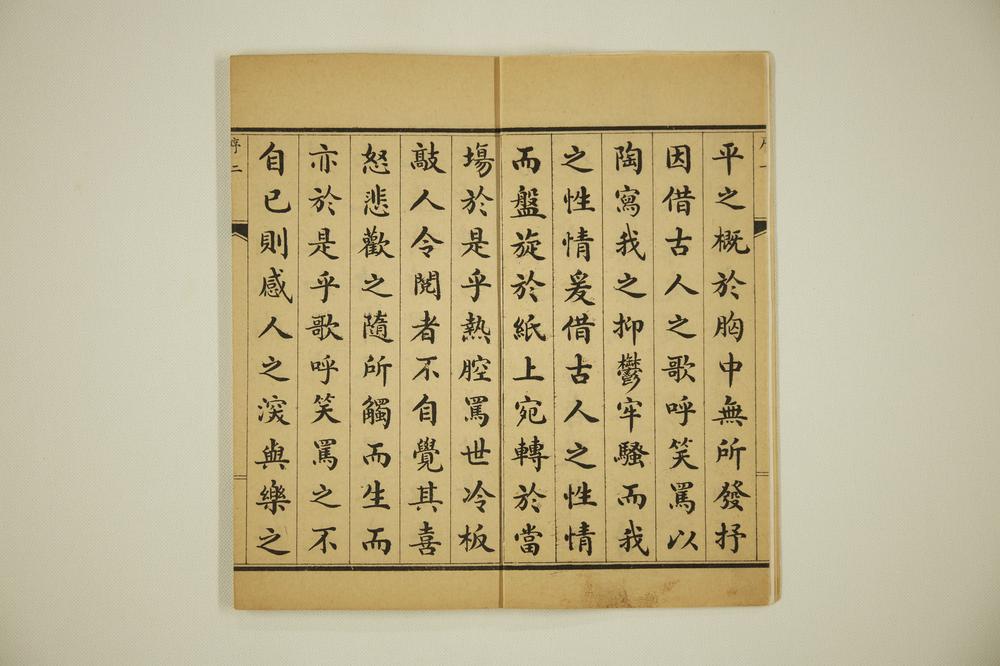 平之概於胸中無所發抒
因借古人之歌呼笑罵以
陶寫我之抑鬱牢騷而我
之性情爰借古人之性情
而盤旋於紙上宛轉於當
場於是乎熱腔罵世冷板
敲人令閱者不自覺其喜
怒悲歡之隨所觸而生而
亦於是乎歌呼笑罵之不
自已則感人之深與樂之
序二